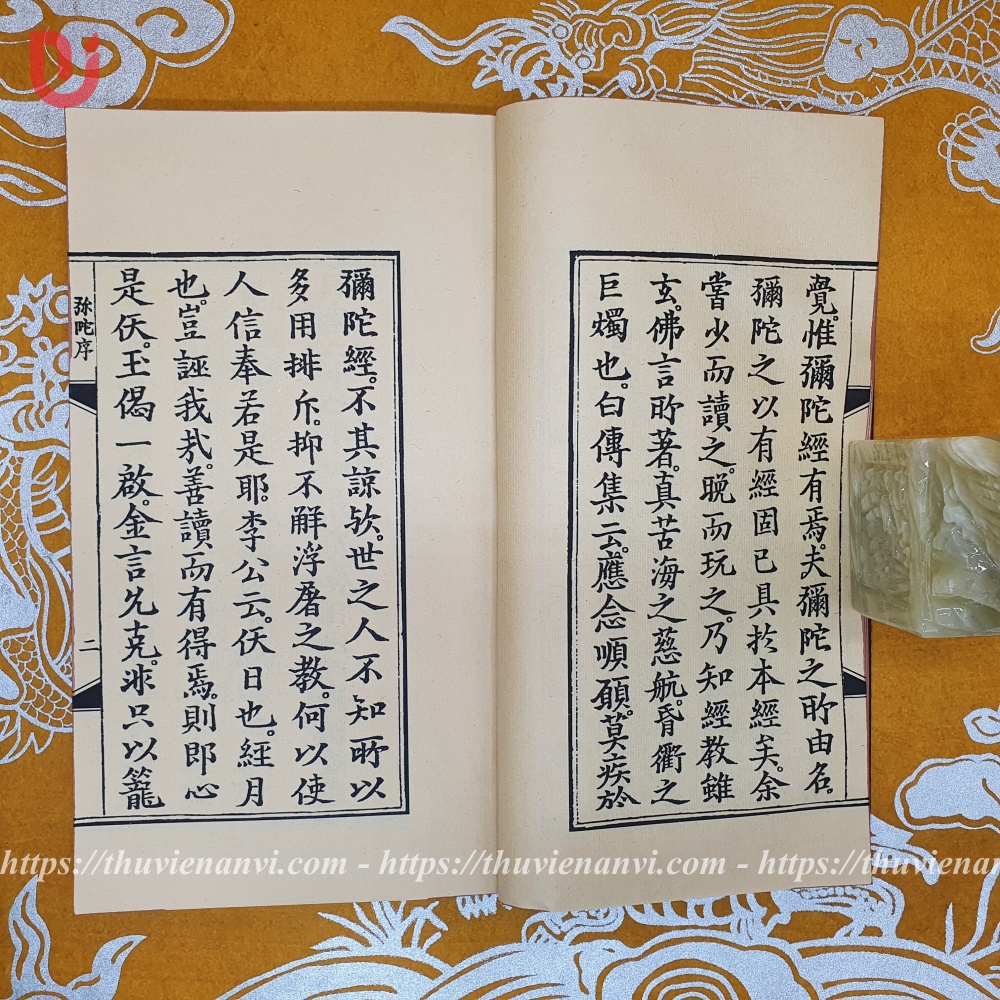 覺。惟彌陀經有焉。夫彌陀之所由名。
彌陀之以有經固已具於本經矣。余
嘗少而讀之。晚而玩之。乃知經教雖
玄。佛言所著。真苦海之慈航。昏衢之
巨燭也。白傳集云。應念順願。莫疾於
彌陀經。不其諒欤。世之人不知所以
多用排斥。抑不解浮屠之教。何以使
人信奉若是耶。李公云。佅日也。經月
也。豈誣我哉。善讀而有得焉。則即心
是佅。玉偈一啟。金言允克。泒只以籠
弥陀序
二
https://thuvienanvi.com - https://thuvienanvi.com - https://thuviena